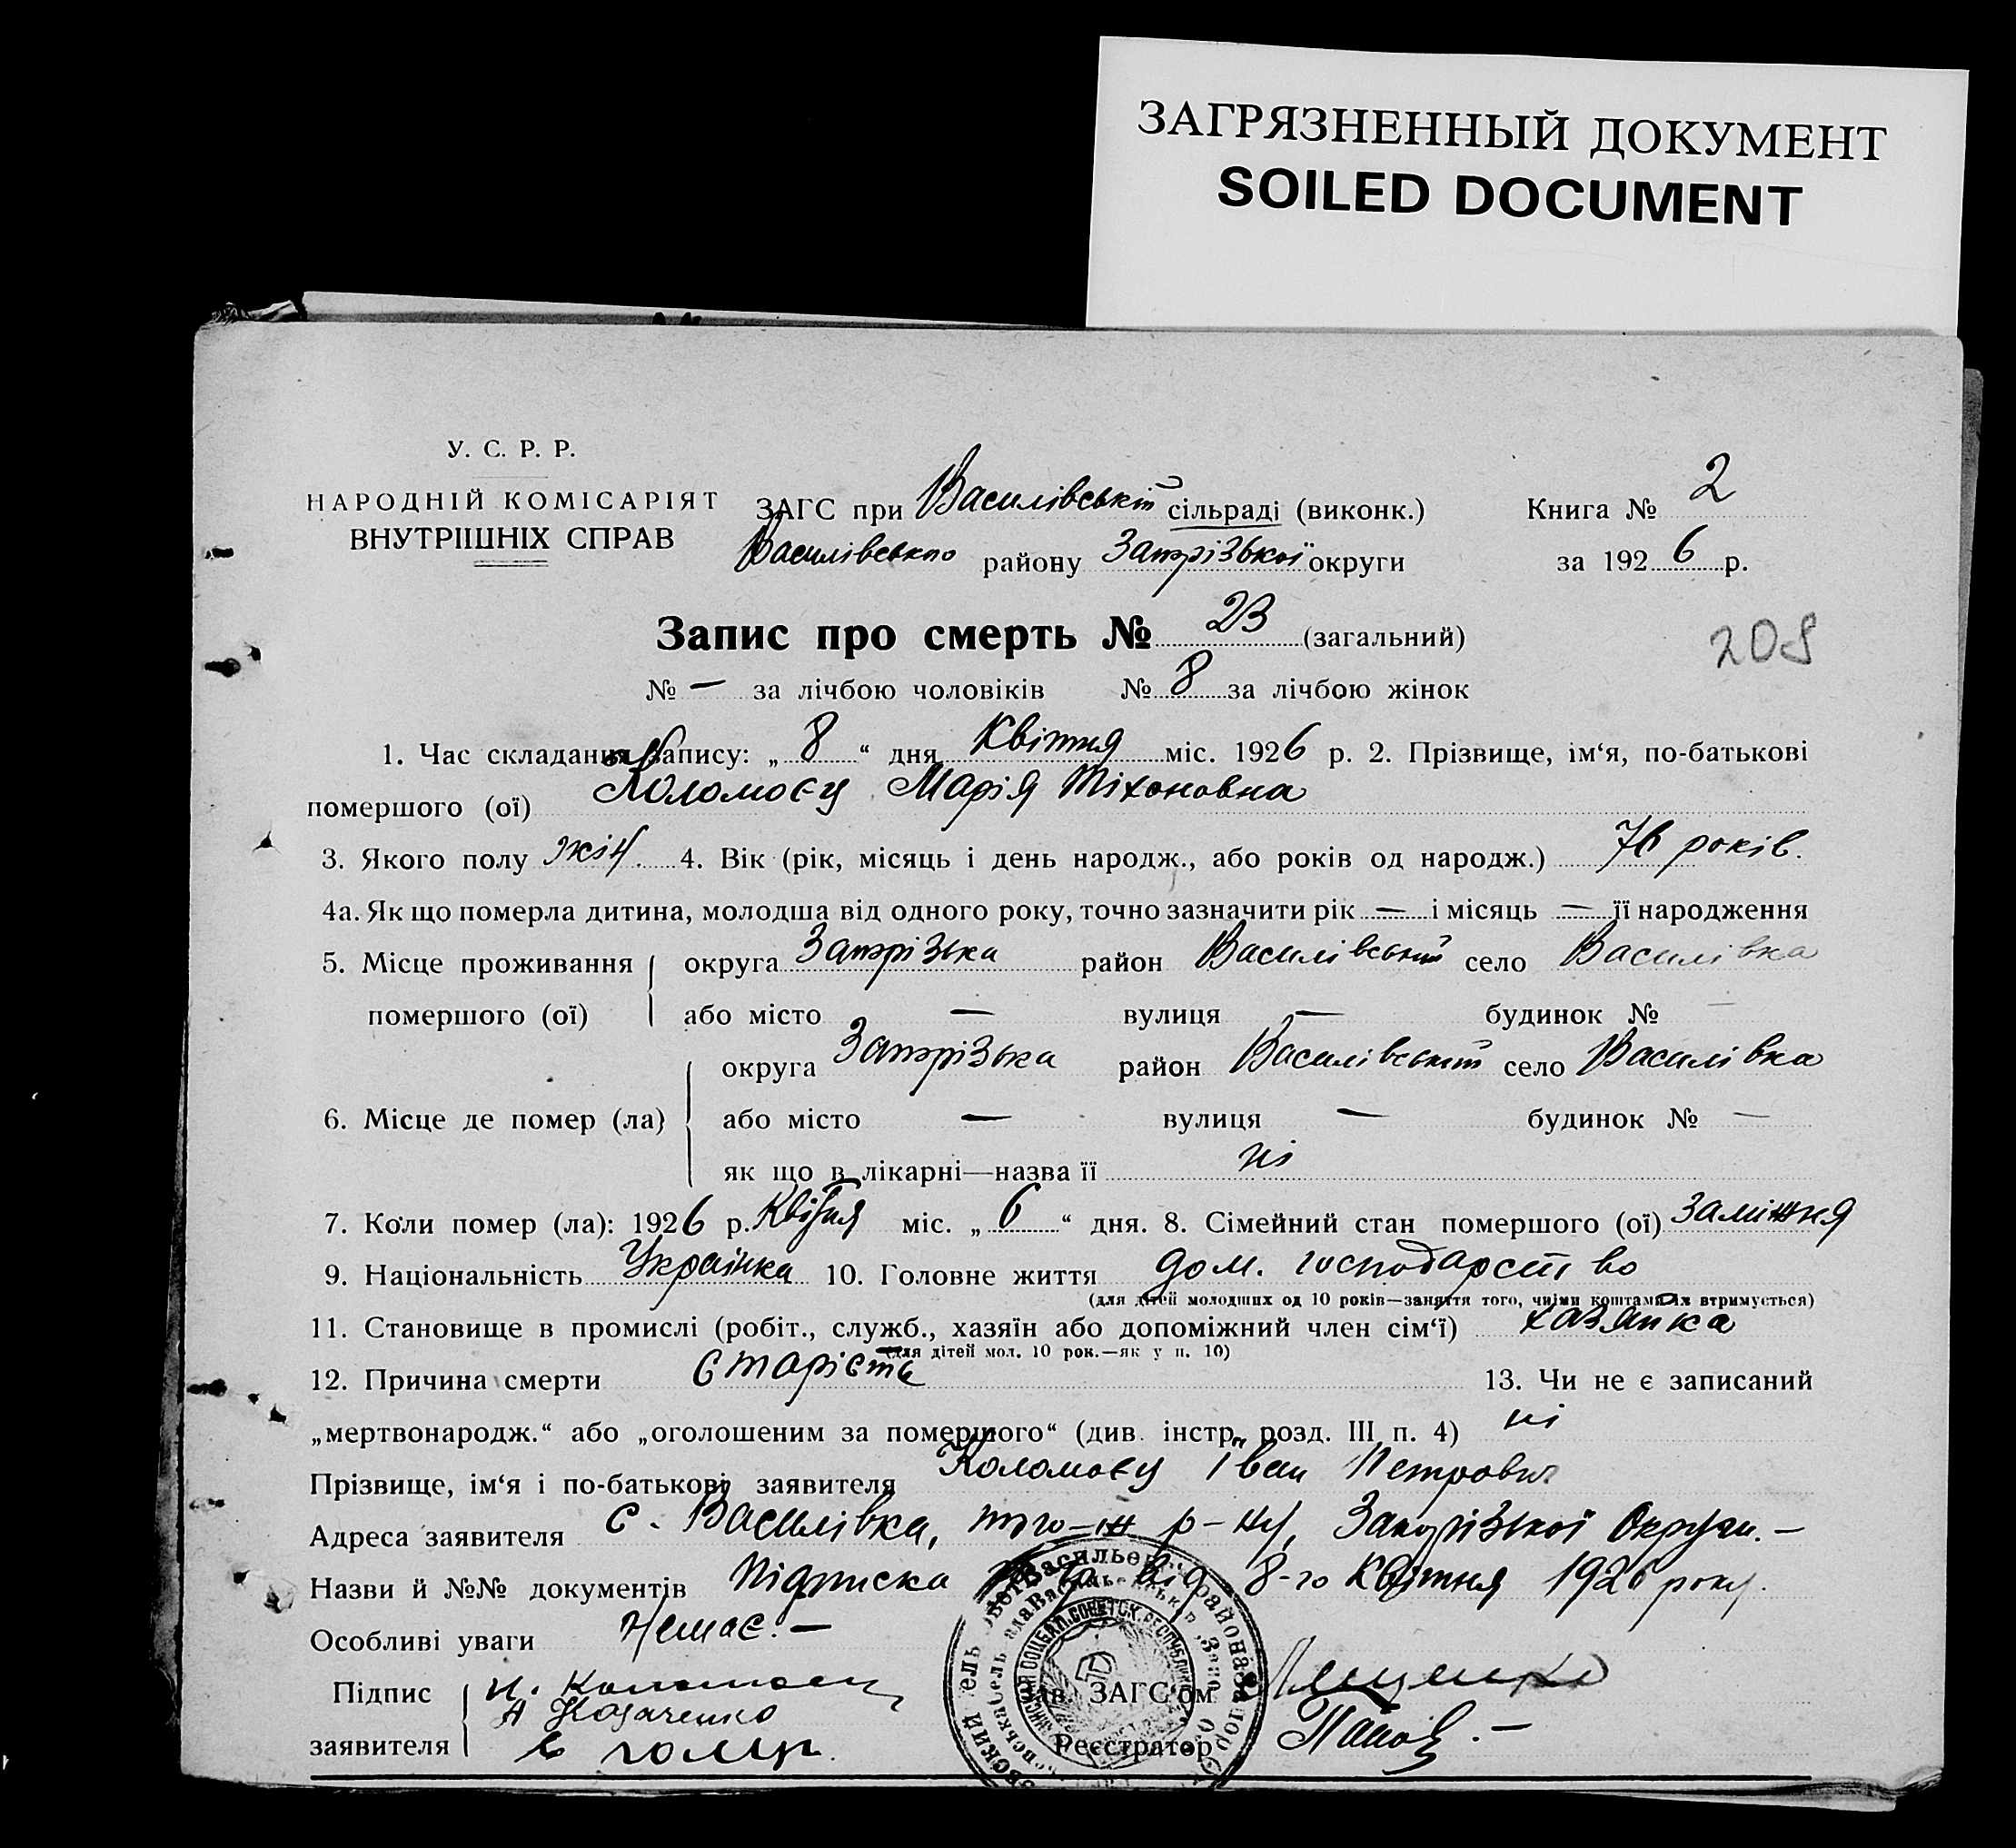 ЗАГРЯЗНЕННЫЙ ДОКУМЕНТ
SOILED DOCUMENT
У. С. Р. Р.
НАРОДНІЙ КОМІСАРІЯТ
ВНУТРІШНІХ СПРАВ
ЗАГС при Василівській сільраді (виконк.)
Книга № 2
Василівського району Запорізької округи
за 1926 р.
Запис про смерть № 23 (загальний)
208
№ — за лічбою чоловіків № 8 за лічбою жінок
1. Час складання запису: „8“ дня Квітня міс. 1926 р. 2. Прізвище, ім‘я, по-батькові
помершого (ої) Коломоєц Марія Тіхоновна
3. Якого полу жін. 4. Вік (рік, місяць і день народж., або років од народж.) 76 років.
4а. Як що померла дитина, молодша від одного року, точно зазначити рік — і місяць — її народження
5. Місце проживання помершого (ої) округа Запорізька район Василівський село Василівка
або місто — вулиця — будинок № —
6. Місце де помер (ла) округа Запорізька район Василівський село Василівка
або місто — вулиця — будинок № —
як що в лікарні—назва її ні
7. Коли помер (ла): 1926 р. Квітня міс. „6“ дня. 8. Сімейний стан помершого (ої) заміжня
9. Національність Українка 10. Головне життя дом. господарство
(для дітей молодших од 10 років—заняття того, чиїми коштами їх втримується)
11. Становище в промислі (робіт., служб., хазяїн або допоміжний член сім‘ї) хазяйка
(для дітей мол. 10 рок.—як у п. 10)
12. Причина смерти старість 13. Чи не є записаний
„мертвонародж.“ або „оголошеним за помершого“ (див. інстр. розд. III п. 4) ні
Прізвище, ім‘я і по-батькові заявителя Коломоєц Іван Петрович
Адреса заявителя с. Василівка, того-ж р-ну, Запорізької Округи. —
Назви й №№ документів Підписка від 8-го Квітня 1926 року.
Особливі уваги Немає. —
Підпис заявителя И. Коломоец
А Козаченко
Зав. ЗАГС‘ом Лещенко
Реєстратор